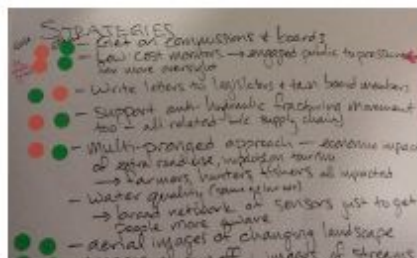 STRATEGIES
- Get on commissions & boards
- Low cost monitors → engaged public to pressure
for more oversight
- Write letters to legislators & town board members
- Support anti hydraulic fracturing movement
too - all related supply chain
- Multi-pronged approach - economic impact
of land use, impact on tourism
→ farmers, hunters, fishers all impacted
- Water quality
→ broad network of sensors just to get
people more aware
- aerial images of changing landscape
images of streams